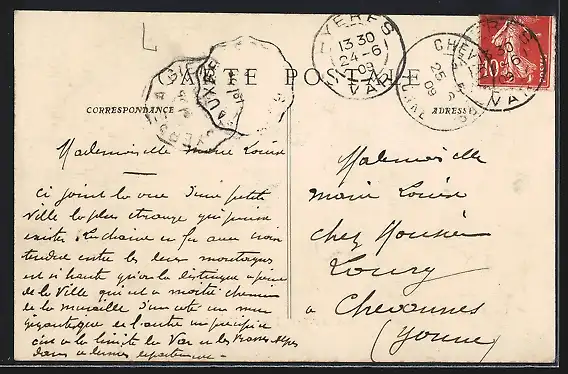 CARTE POSTALE
CORRESPONDANCE
ADRESSE
HYERES
13 30
24-6
09
VAR
CHEV
25
09
10c
Mademoiselle Marie Louise
Ci joint la vue d'une petite
ville la plus étrange qui puisse
exister. La chaine en fer avec croix
tendue entre les deux montagnes
est si haute qu'on la distingue à peine
de la Ville qui est à moitié chemin
de la muraille d'un côté un mur
gigantesque et l'autre un précipice
à la limite du Var et les Basses Alpes
dans département
Mademoiselle
Marie Louise
chez Monsieur
Loury
à Chevannes
(Yonne)